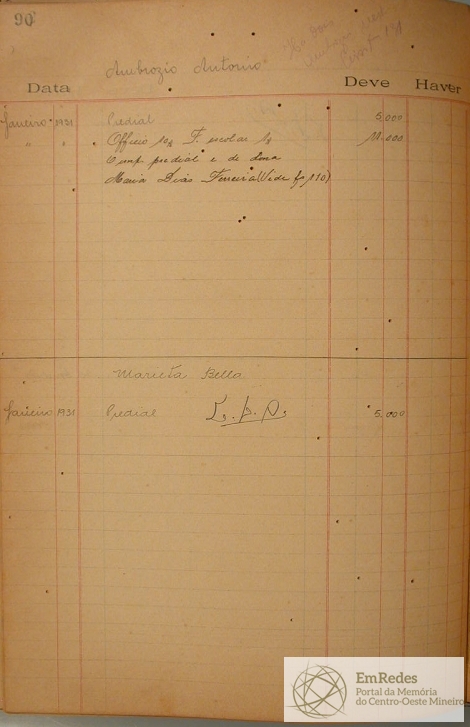 90
Ambrozio Antonio
Data Deve Haver
Janeiro 1931 Predial 5.000
" " Officio 102 T. escolar 11.000
Cump predial e de dona
Maria Dias Ferreira (Vide fs 110)
Marieta Bella
Janeiro 1931 Predial 5.000
EmRedes
Portal da Memória
do Centro-Oeste Mineiro